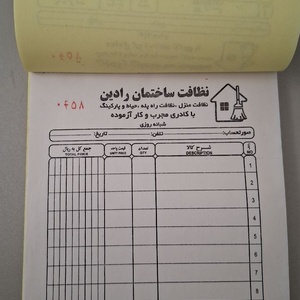 نظافت ساختمان رادین
نظافت منزل ،نظافت راه پله ،حیاط و پارکینگ
با کادری مجرب و کار آزموده
شبانه روزی
۰۴۵۸
صورتحساب: تلفن: تاریخ:
ردیف شرح کالا تعداد قیمت واحد جمع کل به ریال
NO DESCRIPTION QTY UNIT PRICE TOTAL PRICE
1
2
3
4
5
6
7
8